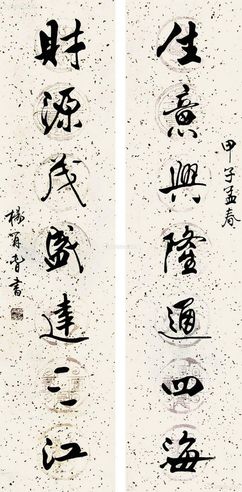 甲子孟春
生意興隆通四海
財源茂盛達三江